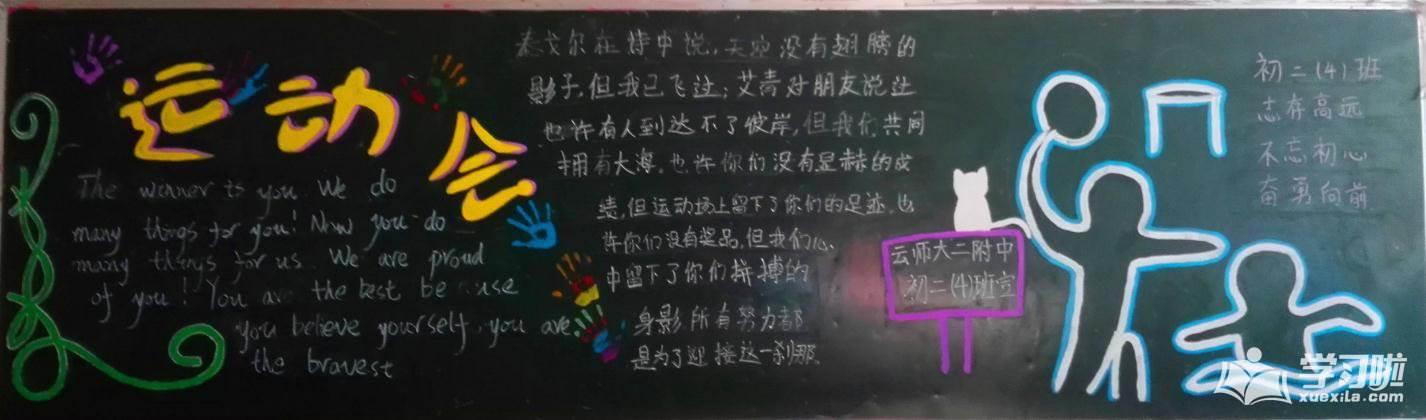 运动会
The winner is you. We do
many things for you! Now you do
many things for us. We are proud
of you! You are the best be use
you believe yourself, you are
the bravest
泰戈尔在诗中说,天空没有翅膀的
影子,但我已飞过;艾青对朋友说过
也许有人到达不了彼岸,但我们共同
拥有大海。也许你们没有显赫的成
绩,但运动场上留下了你们的足迹,也
许你们没有奖品,但我们心
中留下了你们拼搏的
身影所有努力都
是为了迎接这一刹那。
云师大二附中
初二(4)班宣
初二(4)班
志存高远
不忘初心
奋勇向前
学习啦
xuexila.com